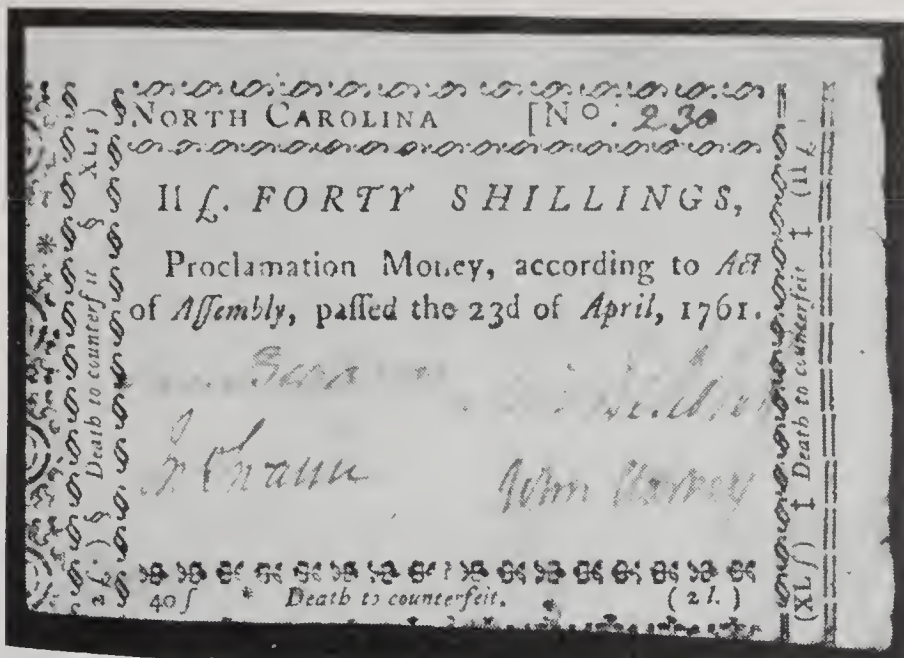 NORTH CAROLINA [No. 230
II £. FORTY SHILLINGS,
Proclamation Money, according to Act
of Aſſembly, paſſed the 23d of April, 1761.
Swann
John Harvey
40ſ * Death to counterfeit. (2l.)
2£.) § Death to counterfeit § XLs)
(XLſ) ‡ Death to counterfeit ‡ (II£.